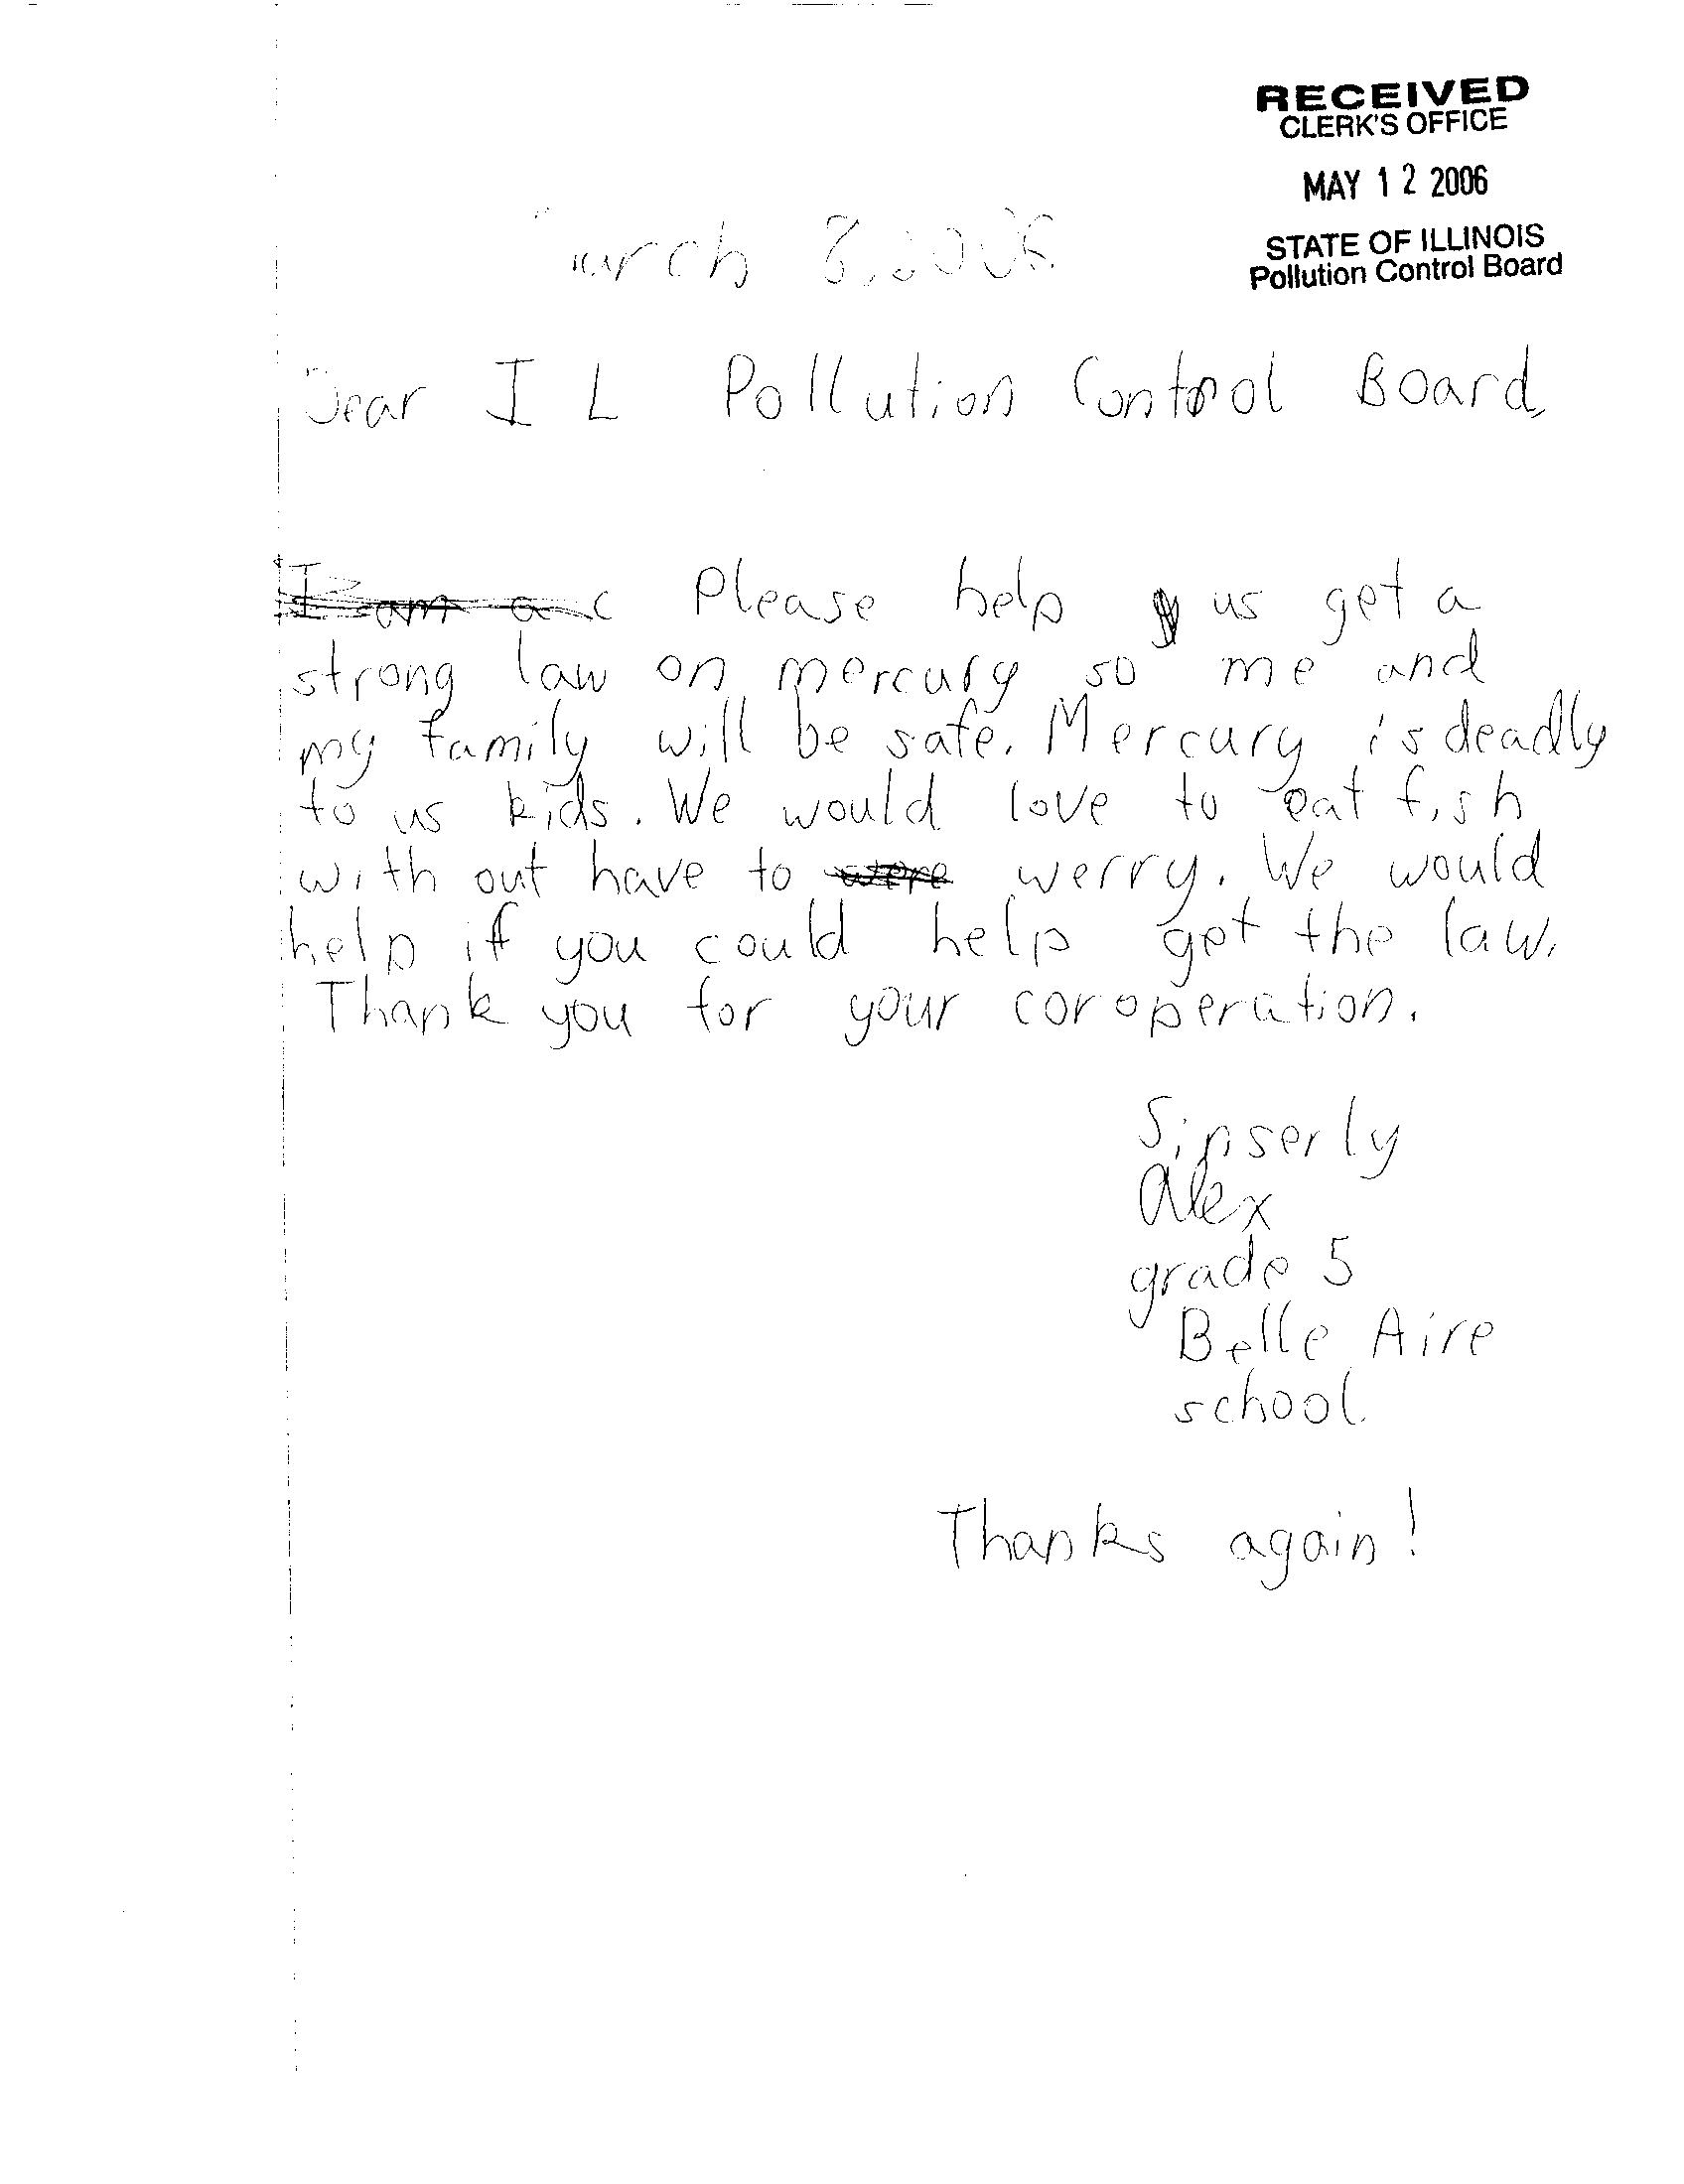 RECEIVED
CLERK'S OFFICE
MAY 12 2006
STATE OF ILLINOIS
Pollution Control Board
March 8, 2006
Dear IL Pollution Control Board,
I am a Please help us get a
strong law on mercury so me and
my family will be safe. Mercury is deadly
to us kids. We would love to eat fish
with out have to were werry. We would
help if you could help get the law.
Thank you for your coroperation.
Sinserly
Alex
grade 5
Belle Aire
school
Thanks again!